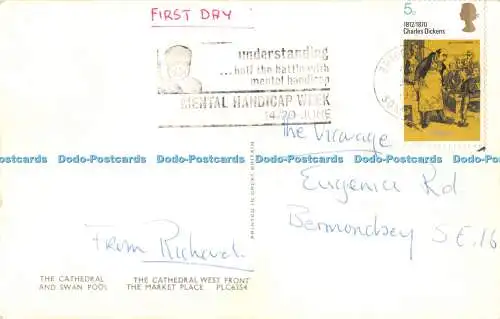 FIRST DAY
5p
1812/1870
Charles Dickens
understanding
...half the battle with
mental handicap
MENTAL HANDICAP WEEK
14-20 JUNE
The Vicarage
Dodo-Postcards Dodo-Postcards Dodo-Postcards Dodo-Postcards Dodo-Postcards Dodo-Postcards
Eugenia Rd.
Bermondsey S.E.16
PRINTED IN GREAT BRITAIN
From Richard.
THE CATHEDRAL THE CATHEDRAL WEST FRONT
AND SWAN POOL THE MARKET PLACE PLC6354